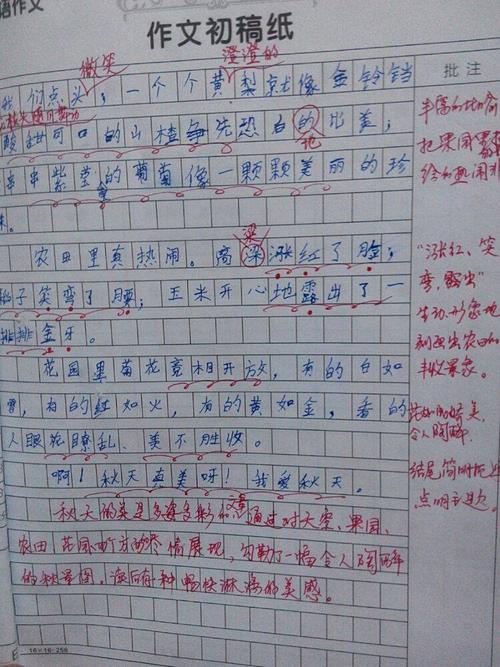 语作文
作文初稿纸
批注
微笑
澄澄的
我们点头，一个个黄梨就像金铃铛
酸甜可口的山楂争先恐后的出差；
地
串串紫莹的葡萄像一颗颗美丽的珍
珠。
农田里真热闹。高梁涨红了脸；
粱
稻子笑弯了腰；玉米开心地露出了一
排排金牙。
花园里菊花竞相开放，有的白如
雪，有的红如火，有的黄如金，看的
人眼花瞭乱、美不胜收。
啊！秋天真美呀！我爱秋天。
丰富的
把果园
给的热闹非
“涨红、笑
弯、露出”
生动形象地
刻画出农田的
丰收景象。
花如此娇美，
令人陶醉。
结尾简明扼
点明主题
秋天的美是多姿多彩的，通过对天空、果园、
农田、花园四个方面尽情展现，勾勒了一幅令人陶醉
的秋景图，读后有一种畅快淋漓的美感。
16×16=256